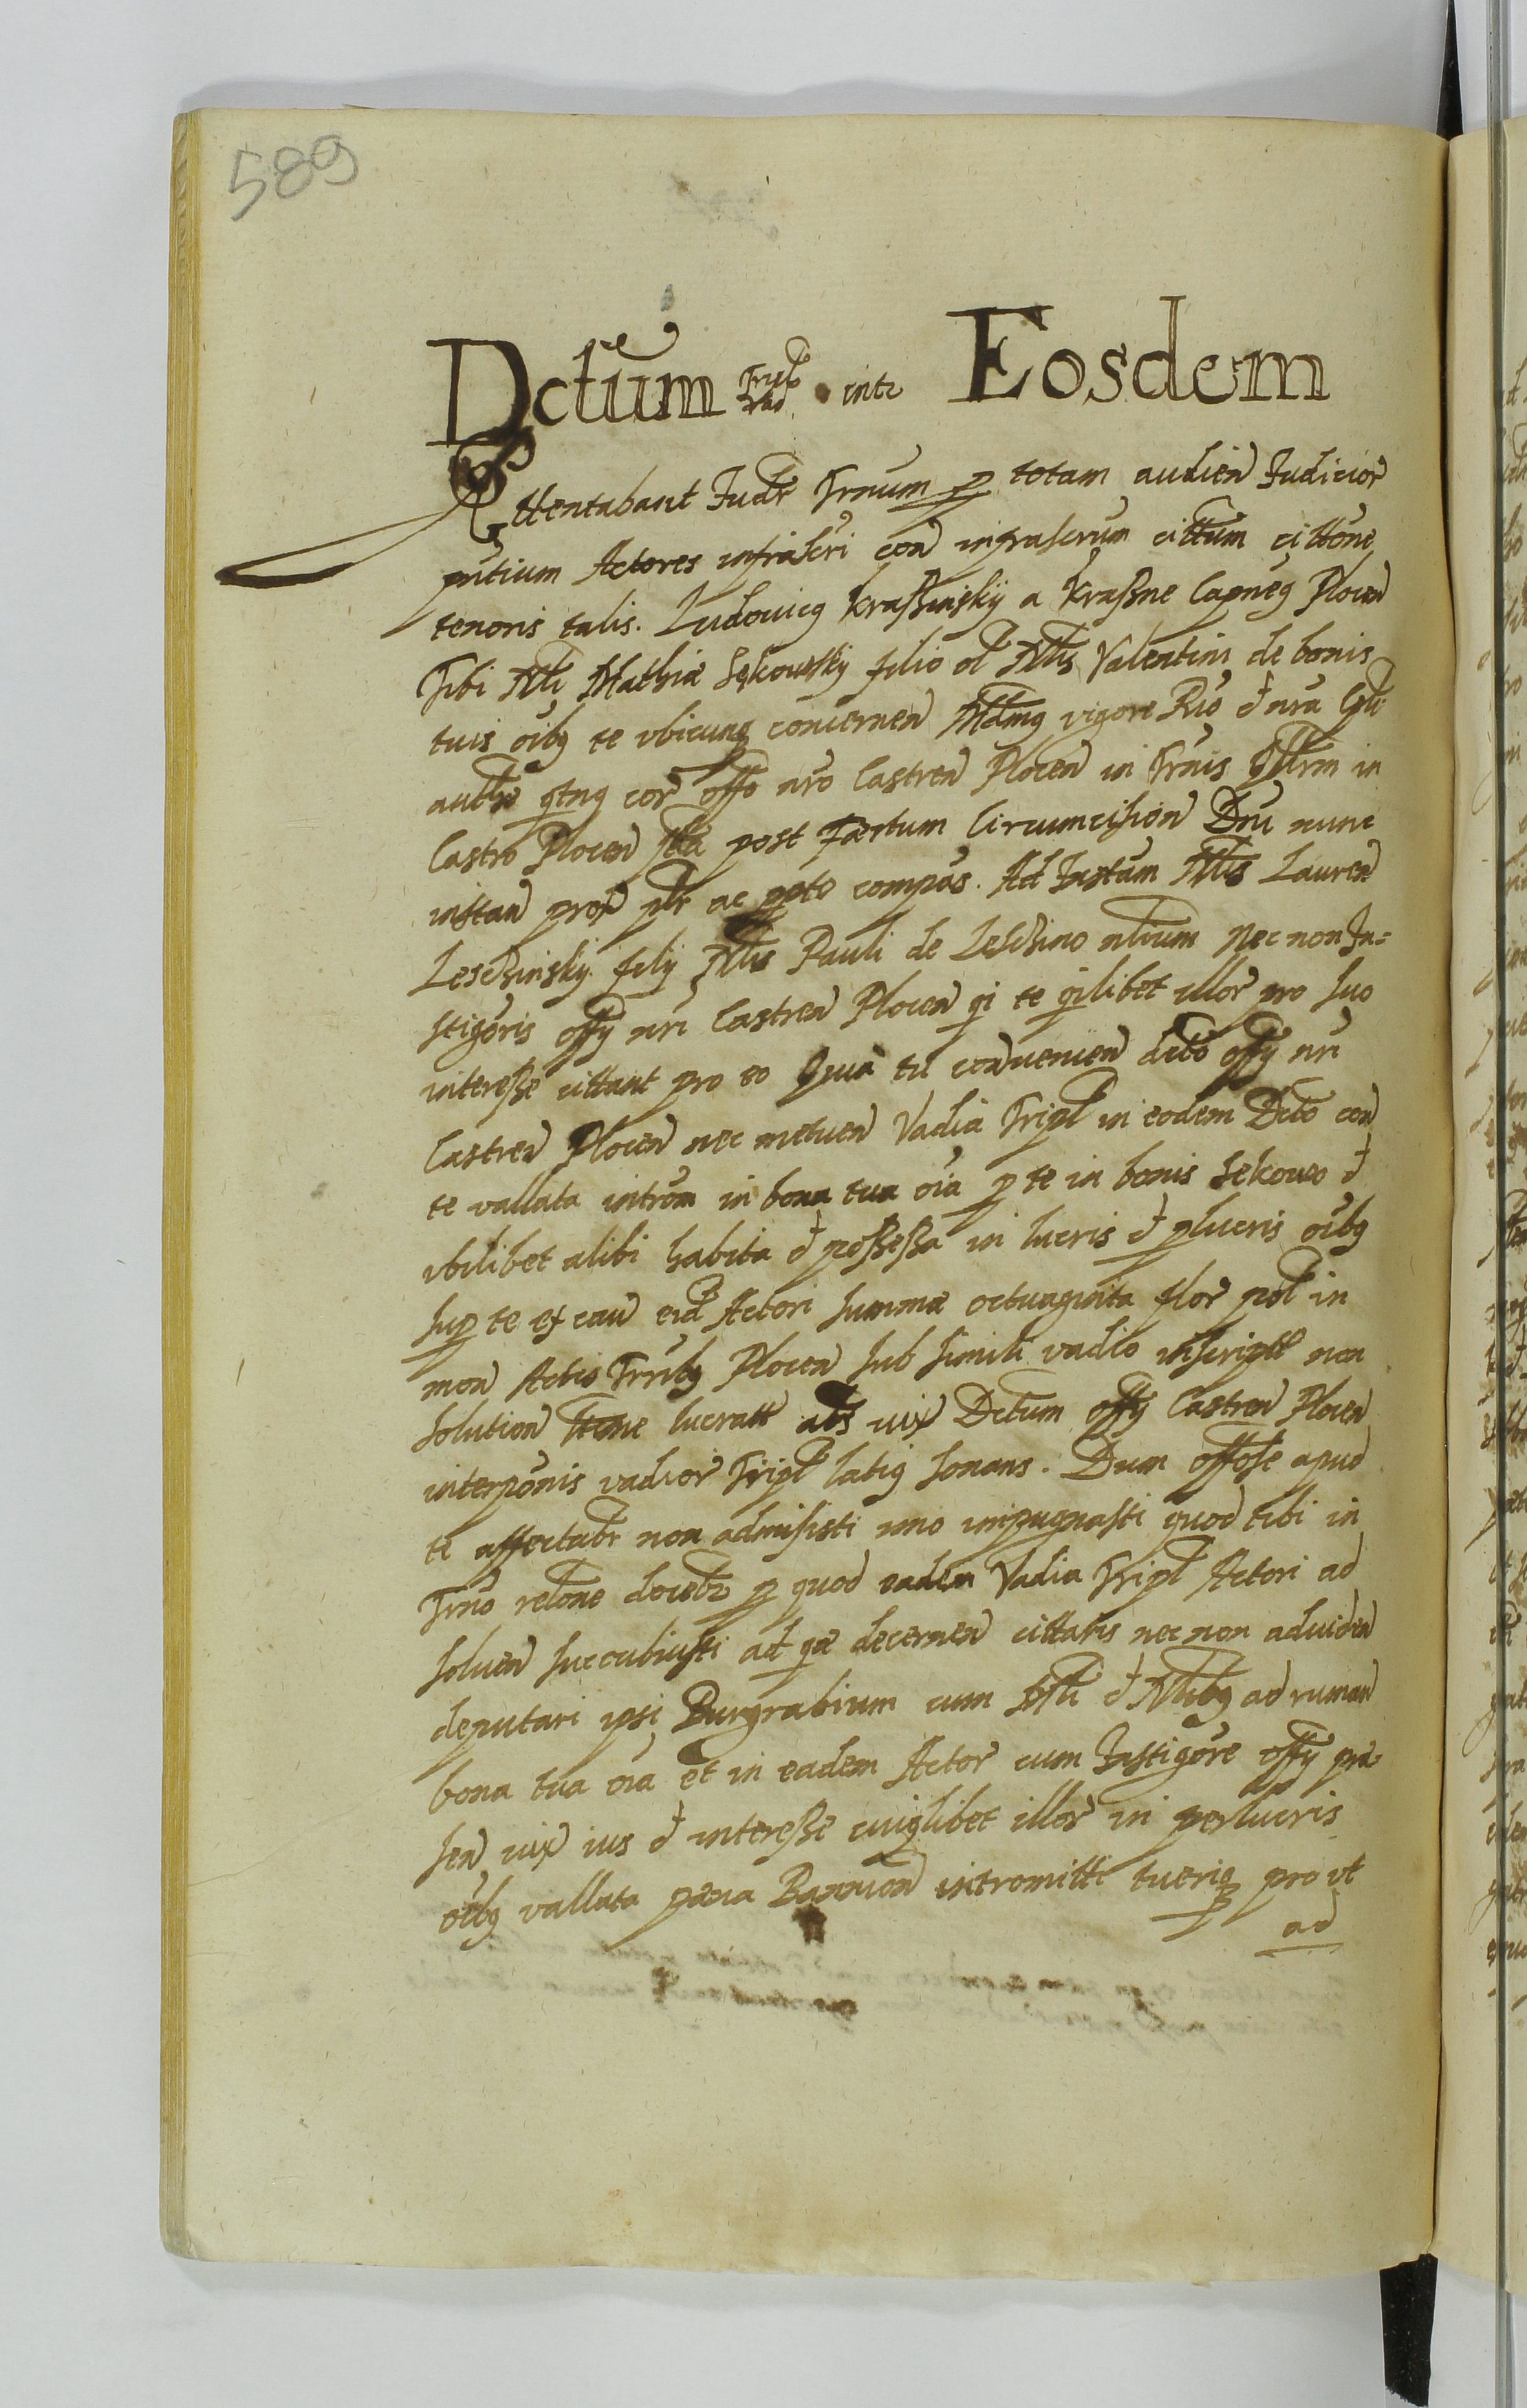 589
Dctum Tripl vad. intr Eosdem
Attentabant Judr Trnum p totam audien Judicior
pntium Actores infrascri con infrascrum cittum cittone
tenoris talis. Ludouicg Kraßinskij a Kraßne Capneg Plocen
Tibi Nli Mathiæ Sękowsky filio ol Nlis Valentini de bonis
tuis oibg te vbicunq concernen Mdmg vigore Rio & nra Cpli
authe qtng cor offo nro Castren Plocen in Trnis qllrm in
Castro Plocen post Fæstum Circumcision Dni nunc
instan prox plr ac ppto compas. Ad Instam Nlis Lauren
Lesczinsky filij Nlis Pauli de Lesczino nlrum Nec non In=
stigoris offij nri Castren Plocen qi te qilibet illor pro suo
interesse cittant pro eo Quia tu conuenien dcto offij nri
Castren Plocen nec metuen Vadia Tripl in eodem Dcto con
te vallata introm in bona tua oia p te in bonis Sekowo &
vbilibet alibi habita & poßeßa in lucris & plucris oibg
sup te ex cau eid Actori summæ octuaginta flor pol in
mon Actis Trribg Plocen sub simili vadio inscriptt non
solution lucratt abs iux Dctum offij Castren Plocen
interponis vadior Tripl latig sonans. Dum offose apud
te affectabr non admisisti imo impugnasti quod tibi in
Trno relone docebr p quod eadem Vadia Tripl Actori ad
soluen succubuisti ad quæ decernen cittaris nec non aduiden
deputari ipsi Burgrabium cum & Nlibg ad ruman
bona tua oia et in eadem Actor cum Instigore offij præ-
sen iux ius & interesse cuiglibet illor in perlucris
oibg vallata pæna Bannion intromitti tuerig pro vt
ad